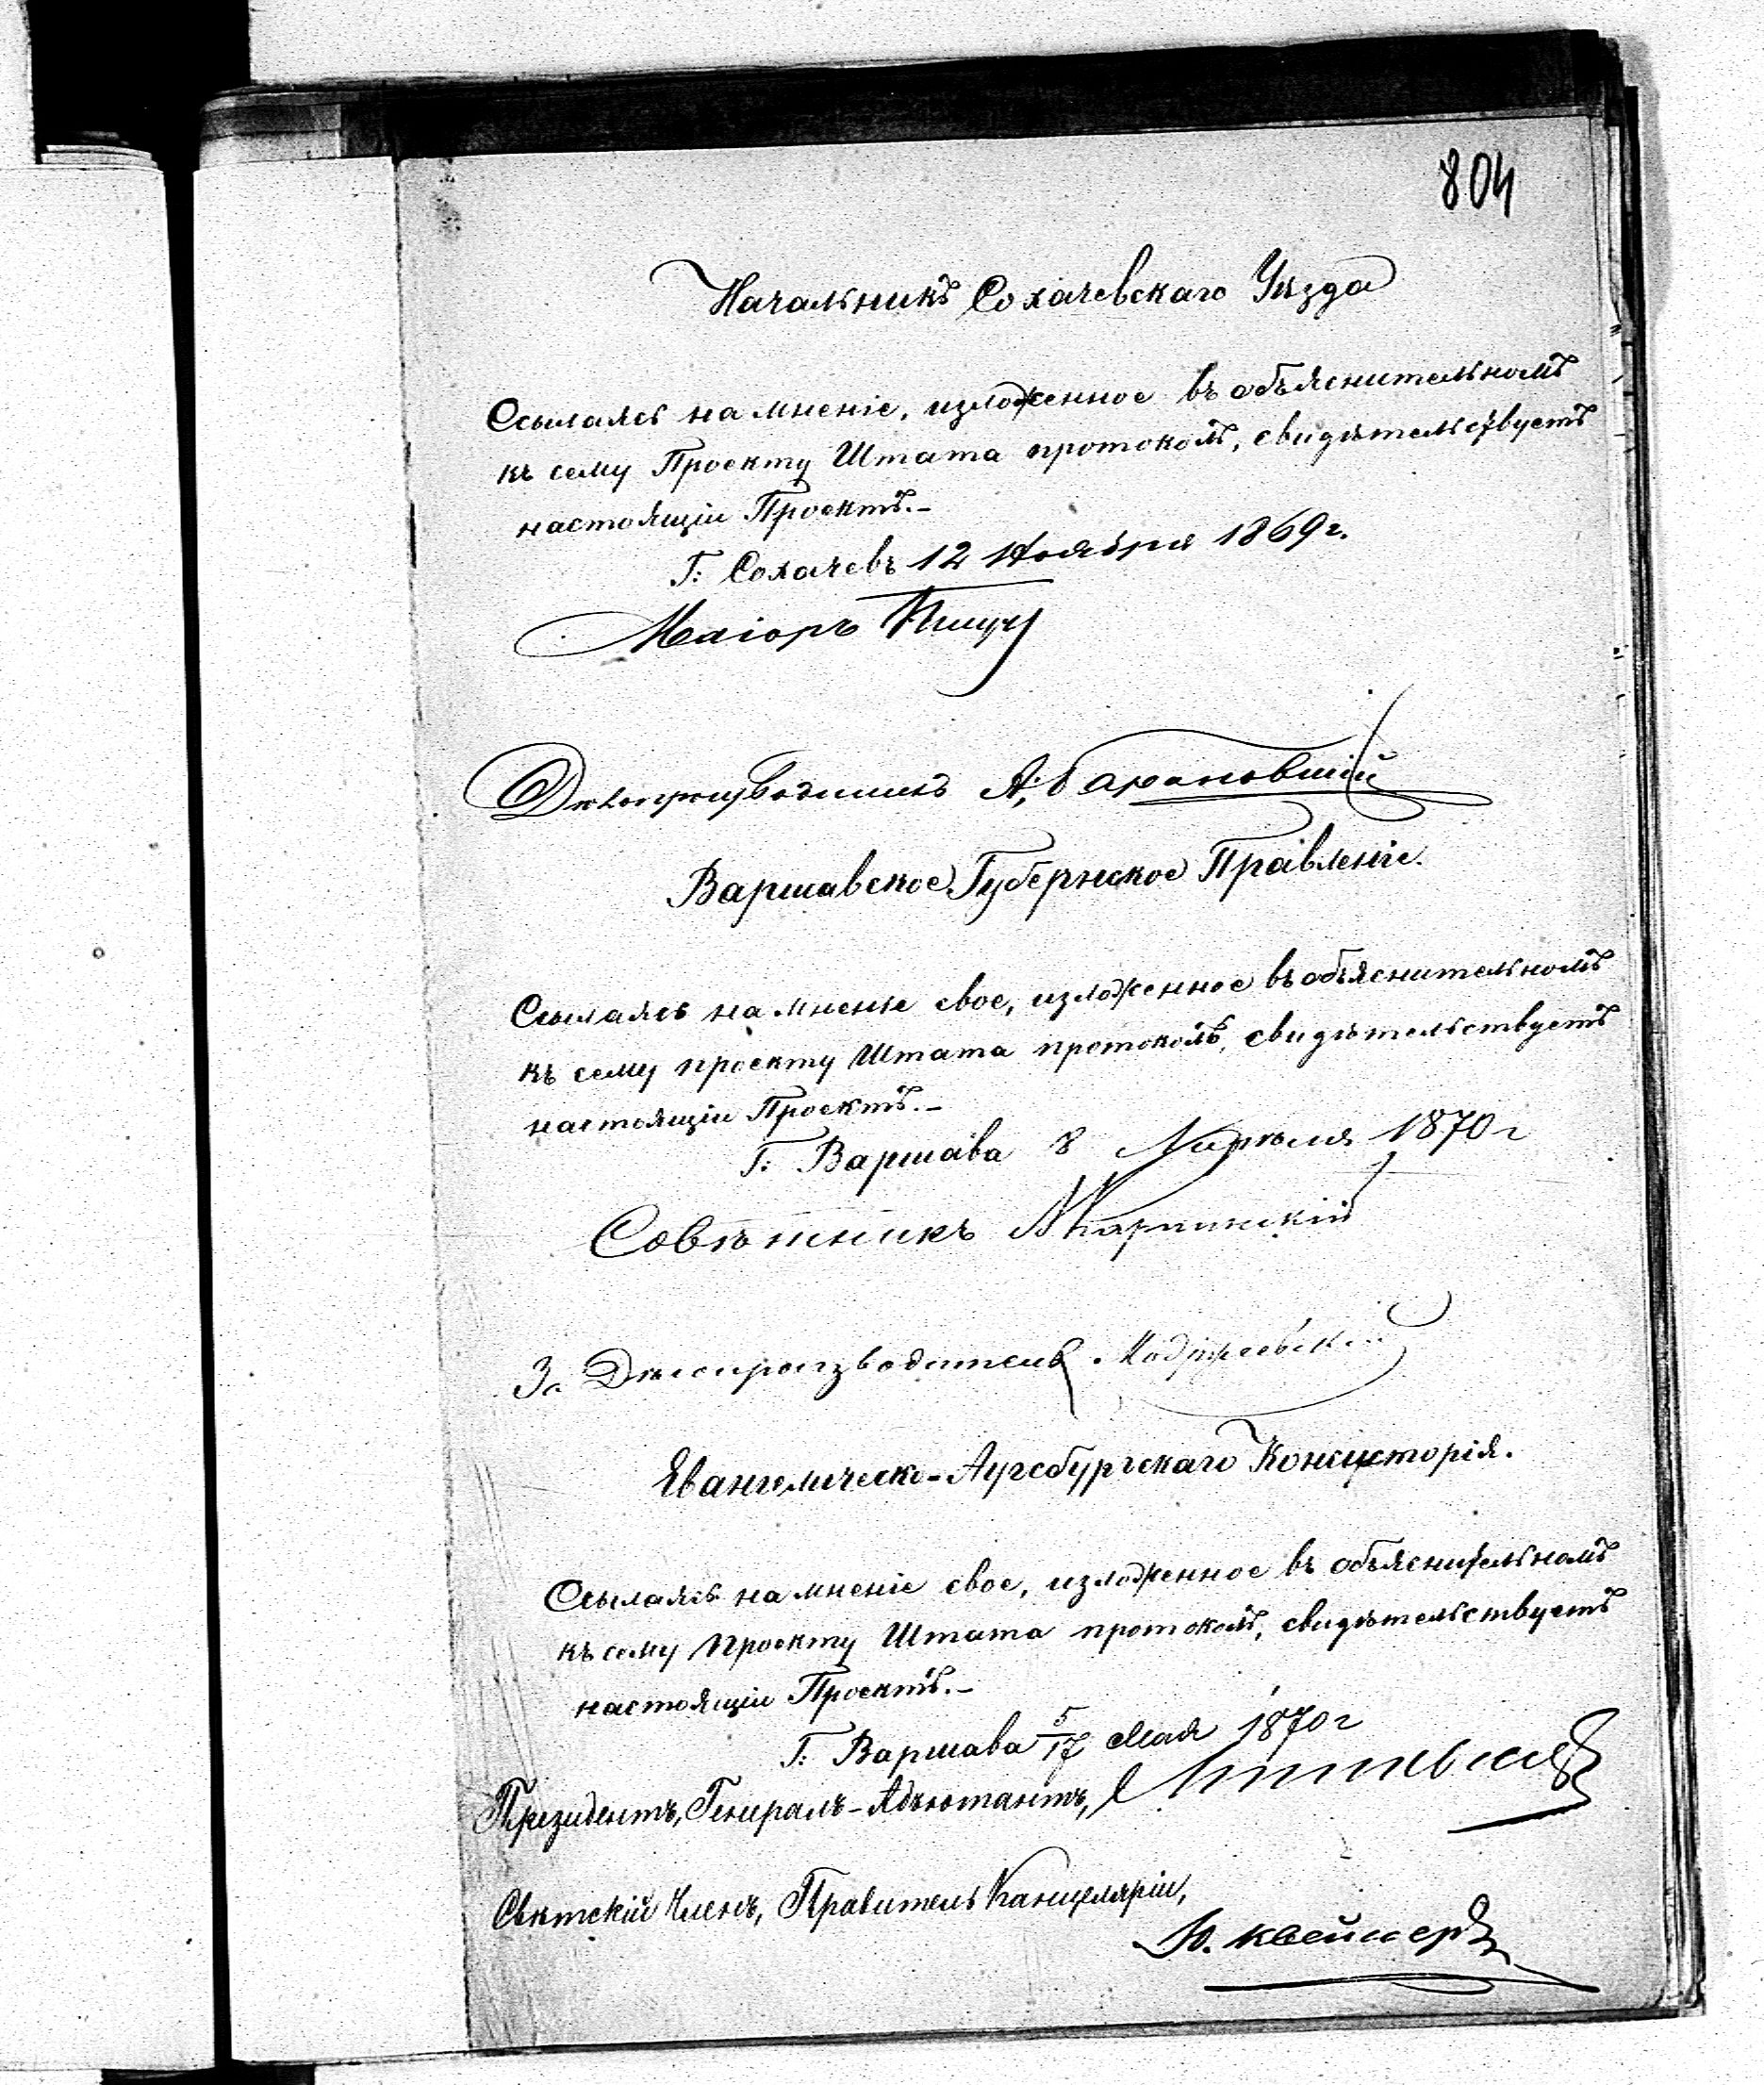 804
Начальникъ Сохачевскаго Уѣзда
Ссылаясь на мненіе, изложенное въ объяснительномъ
къ сему Проекту Штата протоколѣ, свидѣтельствуетъ
настоящій Проектъ.-
Г: Сохачевъ 12 Ноября 1869 г.
Маіоръ
Дѣлопроизводитель А. Барановскій
Варшавское Губернское Правленіе.
Ссылаясь на мненіе свое, изложенное въ объяснительномъ
къ сему проекту Штата протоколѣ, свидѣтельствуетъ
настоящій Проектъ.-
Г: Варшава 8 Апрѣля 1870 г
Совѣтникъ
За Дѣлопроизводителя
Евангелическо-Аугсбургскаго Консисторія.
Ссылаясь на мненіе свое, изложенное въ объяснительномъ
къ сему проекту Штата протоколѣ, свидѣтельствуетъ
настоящій Проектъ.-
Г: Варшава 5/17 Мая 1870 г
Президентъ, Генералъ-Адъютантъ,
Свѣтскій Членъ, Правитель Канцеляріи,